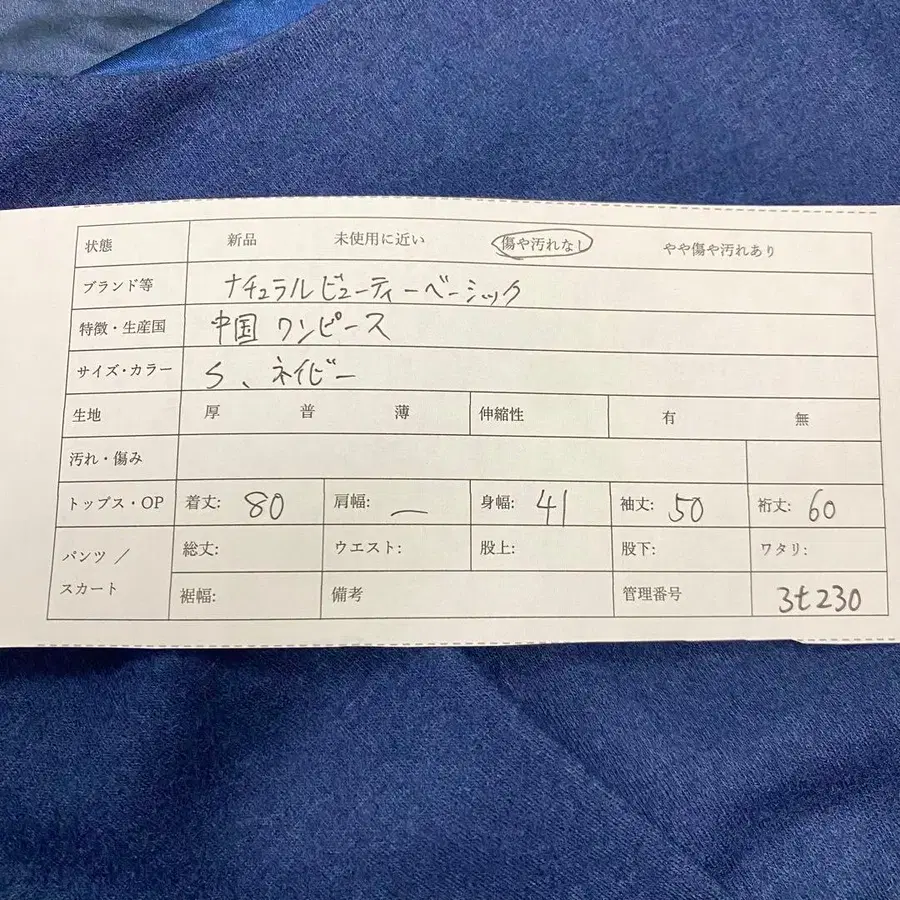 状態 新品 未使用に近い 傷や汚れなし やや傷や汚れあり
ブランド等 ナチュラルビューティーベーシック
特徴・生産国 中国 ワンピース
サイズ・カラー S、ネイビー
生地 厚 普 薄 伸縮性 有 無
汚れ・傷み
トップス・OP 着丈: 80 肩幅: — 身幅: 41 袖丈: 50 裄丈: 60
パンツ / 総丈: ウエスト: 股上: 股下: ワタリ:
スカート 裾幅: 備考 管理番号 3t230